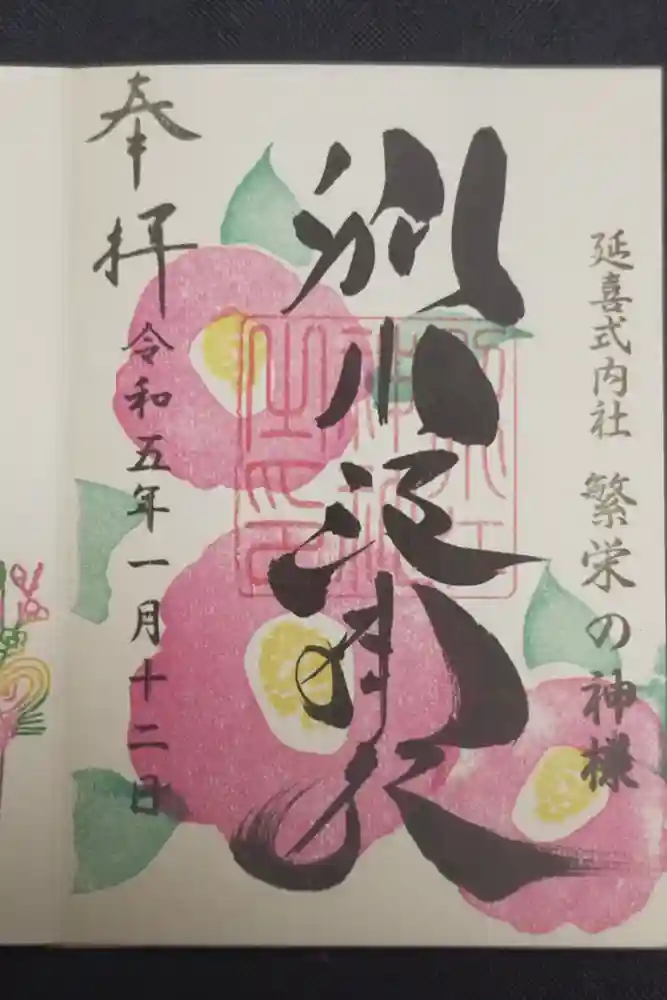 延喜式内社 繁栄の神様
別小江神社
奉拝 令和五年一月十二日